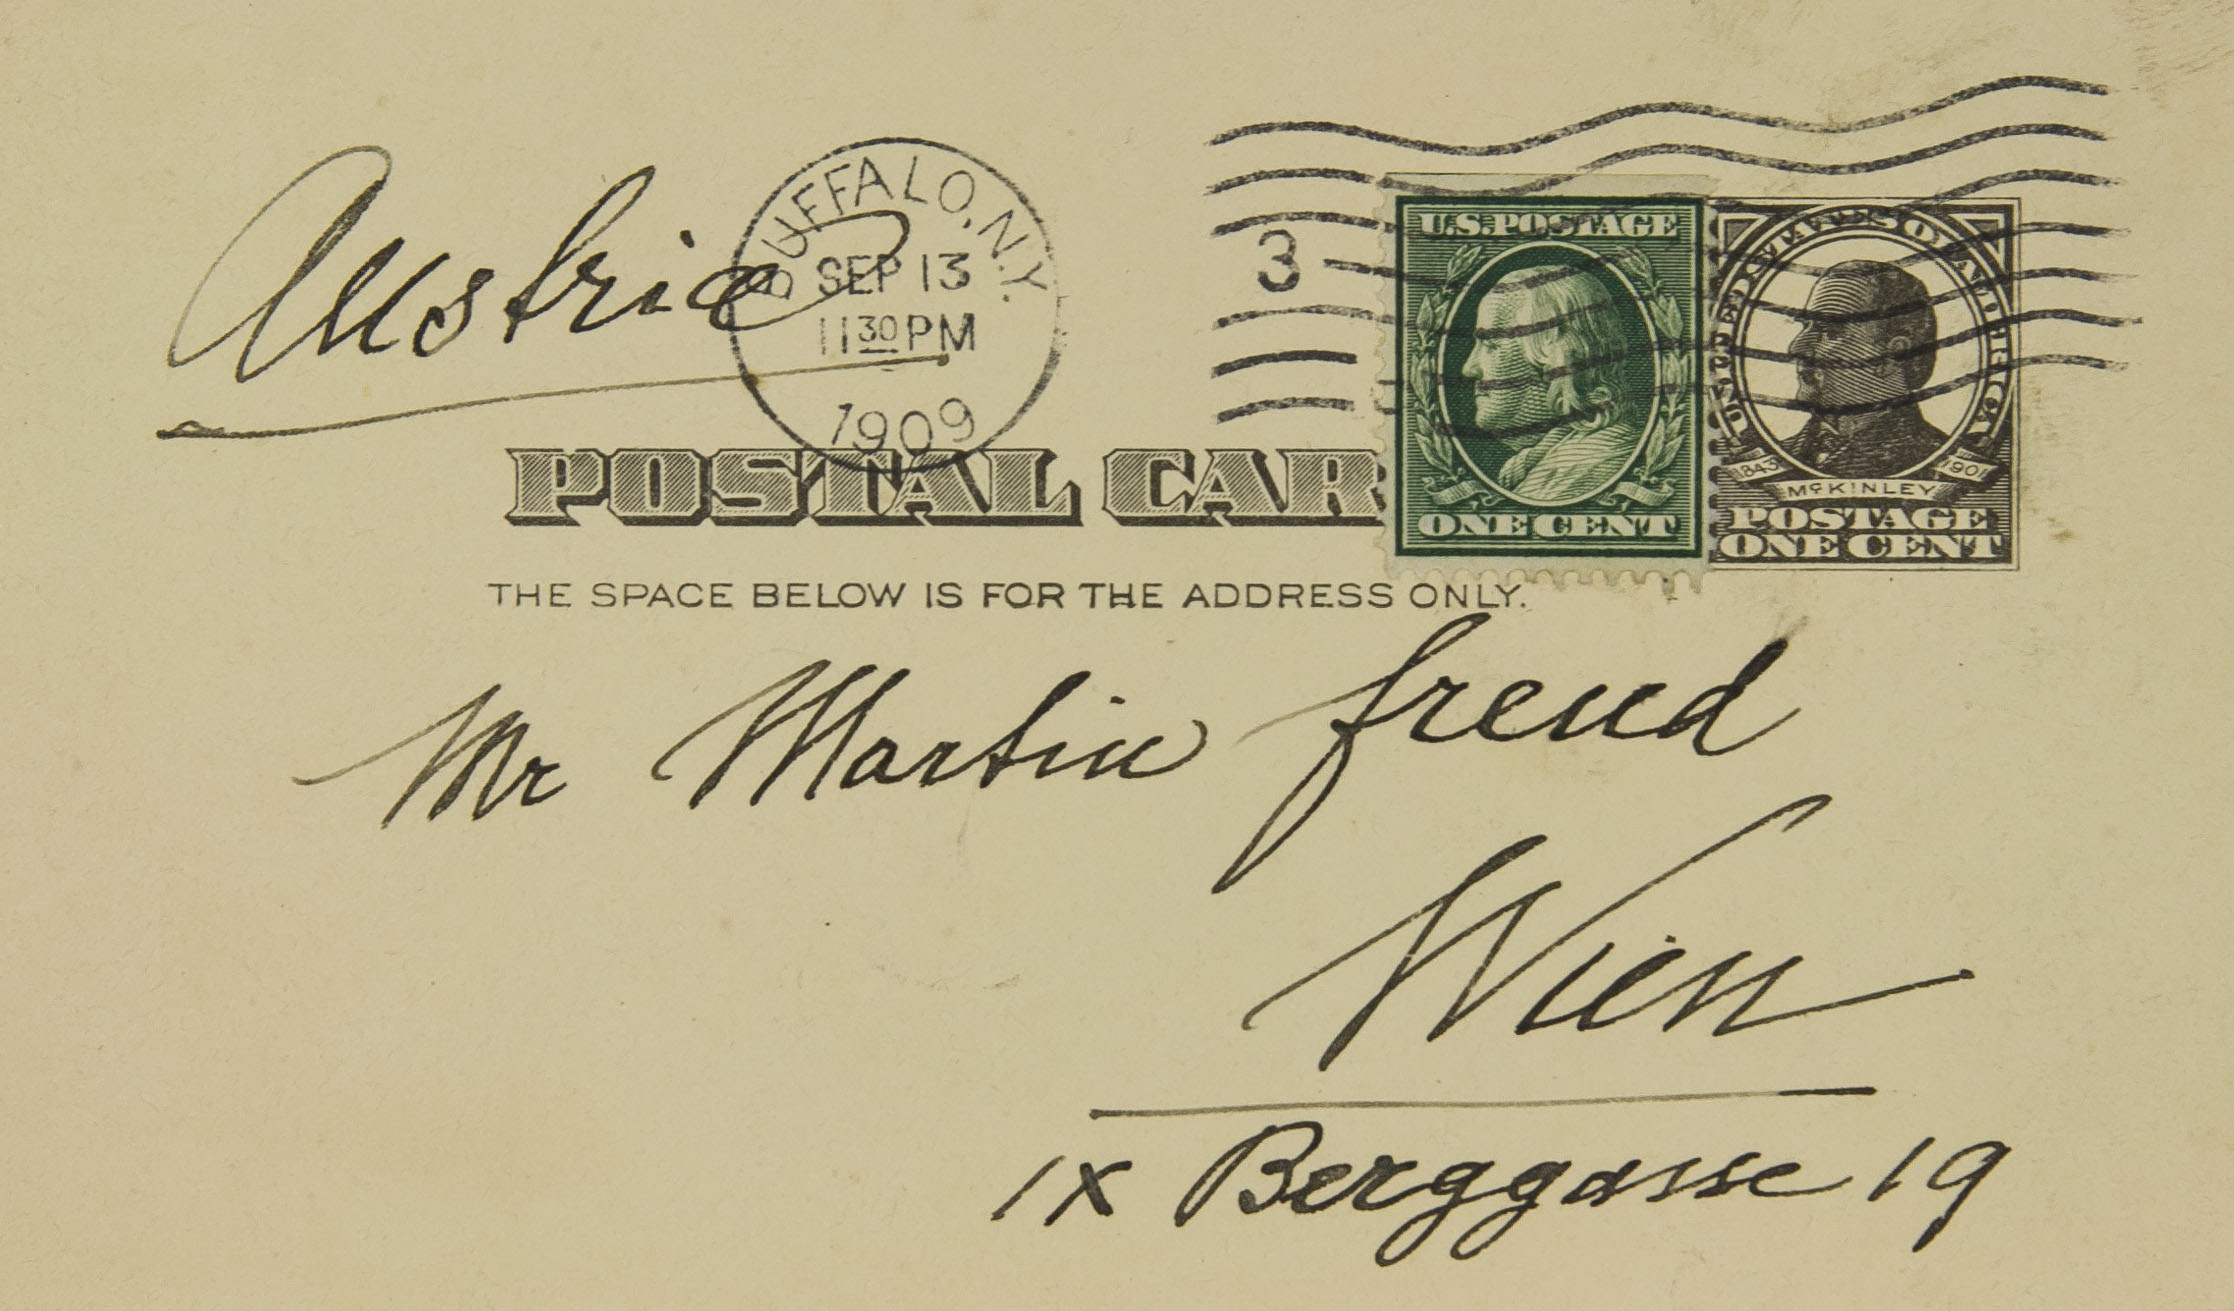 Austria
BUFFALO, N.Y.
SEP 13
11 30 PM
1909
3
U.S. POSTAGE
ONE CENT
UNITED STATES OF AMERICA
1843 1901
McKINLEY
POSTAGE
ONE CENT
POSTAL CAR
THE SPACE BELOW IS FOR THE ADDRESS ONLY.
Mr Martin Freud
Wien
IX Berggasse 19